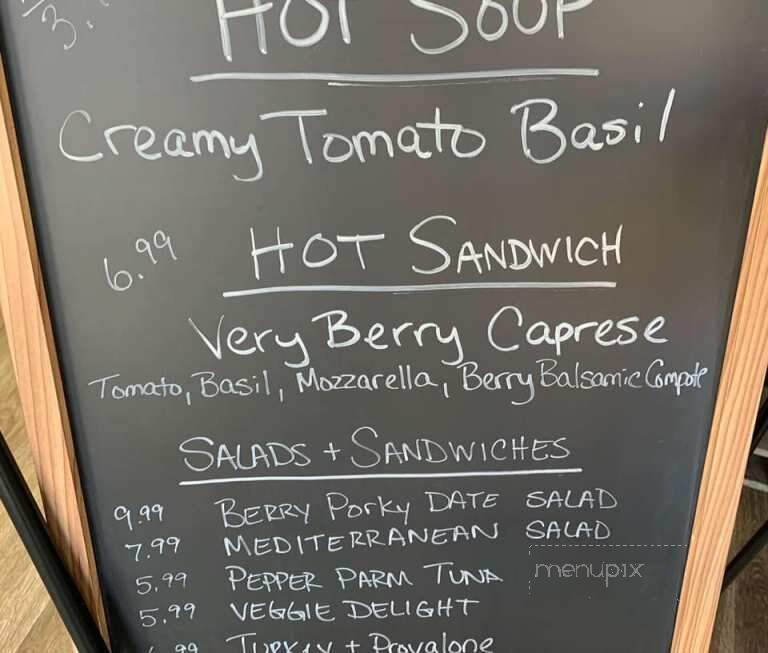 HOT SOUP
Creamy Tomato Basil
6.99 HOT SANDWICH
Very Berry Caprese
Tomato, Basil, Mozzarella, Berry Balsamic Compote
SALADS + SANDWICHES
9.99 BERRY Porky DATE SALAD
7.99 MEDITERRANEAN SALAD
5.99 PEPPER PARM TUNA
menupix
5.99 VEGGIE DELIGHT
.99 TURKEY + Provalone